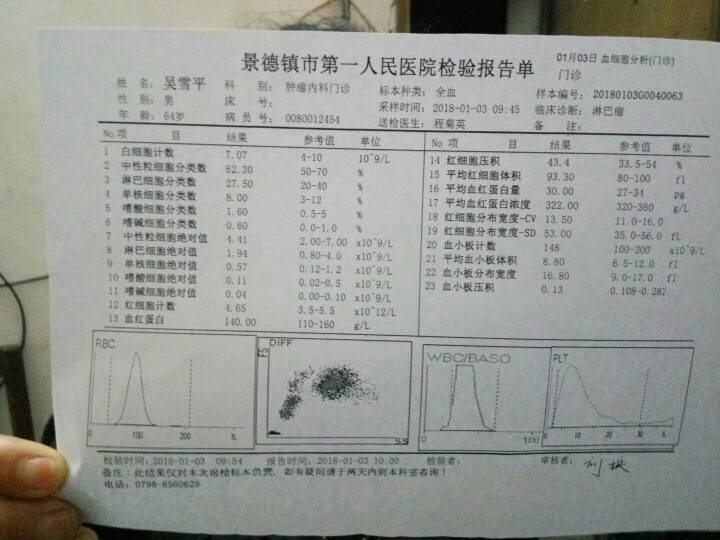 景德镇市第一人民医院检验报告单
01月03日 血细胞分析(门诊)
门诊
姓 名: 吴雪平 科 别: 肿瘤内科门诊 标本种类: 全血 样本编号: 20180103G0040063
性 别: 男 床 号: 采样时间: 2018-01-03 09:45 临床诊断: 淋巴瘤
年 龄: 64岁 病 员 号: 0080012454 送检医生: 程菊英 备 注:
No 项 目 结果 参考值 单位
1 白细胞计数 7.07 4-10 10^9/L
2 中性粒细胞分类数 62.30 50-70 %
3 淋巴细胞分类数 27.50 20-40 %
4 单核细胞分类数 8.00 3-12 %
5 嗜酸细胞分类数 1.60 0.5-5 %
6 嗜碱细胞分类数 0.60 0.0-1.0 %
7 中性粒细胞绝对值 4.41 2.00-7.00 x10^9/L
8 淋巴细胞绝对值 1.94 0.80-4.0 x10^9/L
9 单核细胞绝对值 0.57 0.12-1.2 x10^9/L
10 嗜酸细胞绝对值 0.11 0.02-0.5 x10^9/L
11 嗜碱细胞绝对值 0.04 0.00-0.10 x10^9/L
12 红细胞计数 4.65 3.5-5.5 x10^12/L
13 血红蛋白 140.00 110-160 g/L
No 项 目 结果 参考值 单位
14 红细胞压积 43.4 33.5-54 %
15 平均红细胞体积 93.30 80-100 fl
16 平均血红蛋白量 30.00 27-34 pg
17 平均血红蛋白浓度 322.00 320-360 g/L
18 红细胞分布宽度-CV 13.50 11.0-16.0
19 红细胞分布宽度-SD 53.00 35.0-56.0 fL
20 血小板计数 148 100-300 x10^9/L
21 平均血小板体积 8.80 6.5-12.0 fl
22 血小板分布宽度 16.80 9.0-17.0 fl
23 血小板压积 0.13 0.108-0.282
RBC
0 100 200 fL
DIFF
FS
SS
WBC/BASO
0 100
PLT
0 10 20 30 fL
检验时间:2018-01-03 09:54 报告时间:2018-01-03 10:00 检验者: 审核者:
备注:此结果仅对本次送检标本负责, 如有疑问请于两天内到本科室咨询!
电话:0798-8560629